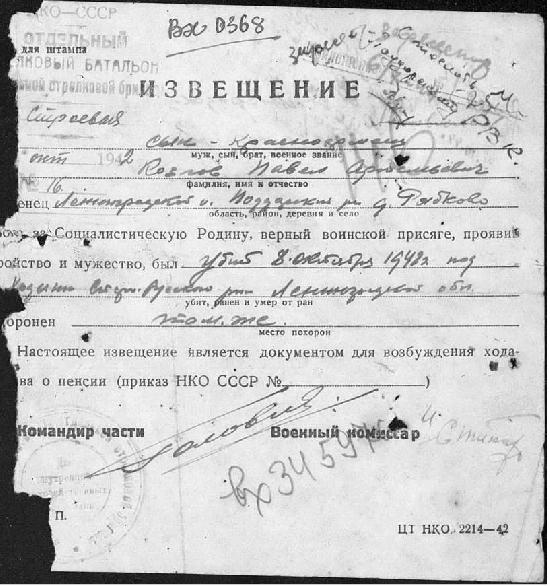 НКО-СССР
Вх 0368
для штампа
ОТДЕЛЬНЫЙ
ЛКОВЫЙ БАТАЛЬОН
ной стрелковой бриг
ИЗВЕЩЕНИЕ
Строевая
сын - Красноармеец
окт 1942
муж, сын, брат, военное звание
№ 16.
Козлов Павел Артемьевич
фамилия, имя и отчество
енец Ленинградской о. р. д. Рябково
область, район, деревня и село
бою за Социалистическую Родину, верный воинской присяге, проявив
ройство и мужество, был убит 8 октября 1942г. под
Стар. Русского р-на Ленинградской обл.
убит, ранен и умер от ран
оронен там-же.
место похорон
Настоящее извещение является документом для возбуждения хода-
ва о пенсии (приказ НКО СССР № )
Командир части
Военный комиссар
вх 34597
П.
ЦТ НКО 2214—42